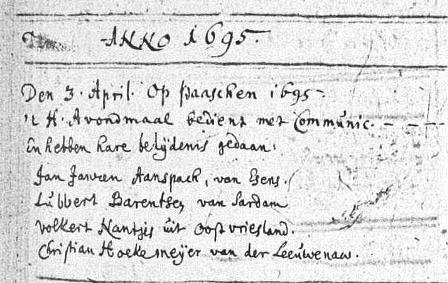 ANNO 1695.
Den 3. April. Op paaschen 1695.
't H. Avondmaal bedient met Communic. - - -
En hebben hare belijdenis gedaan:
Jan Janssen Aanspack, van Esens.
Lubbert Barentsen van Sardam
Volkert Nantjes uit Oostvriesland.
Christian Hoekemeijer van der Leeuwenaw.